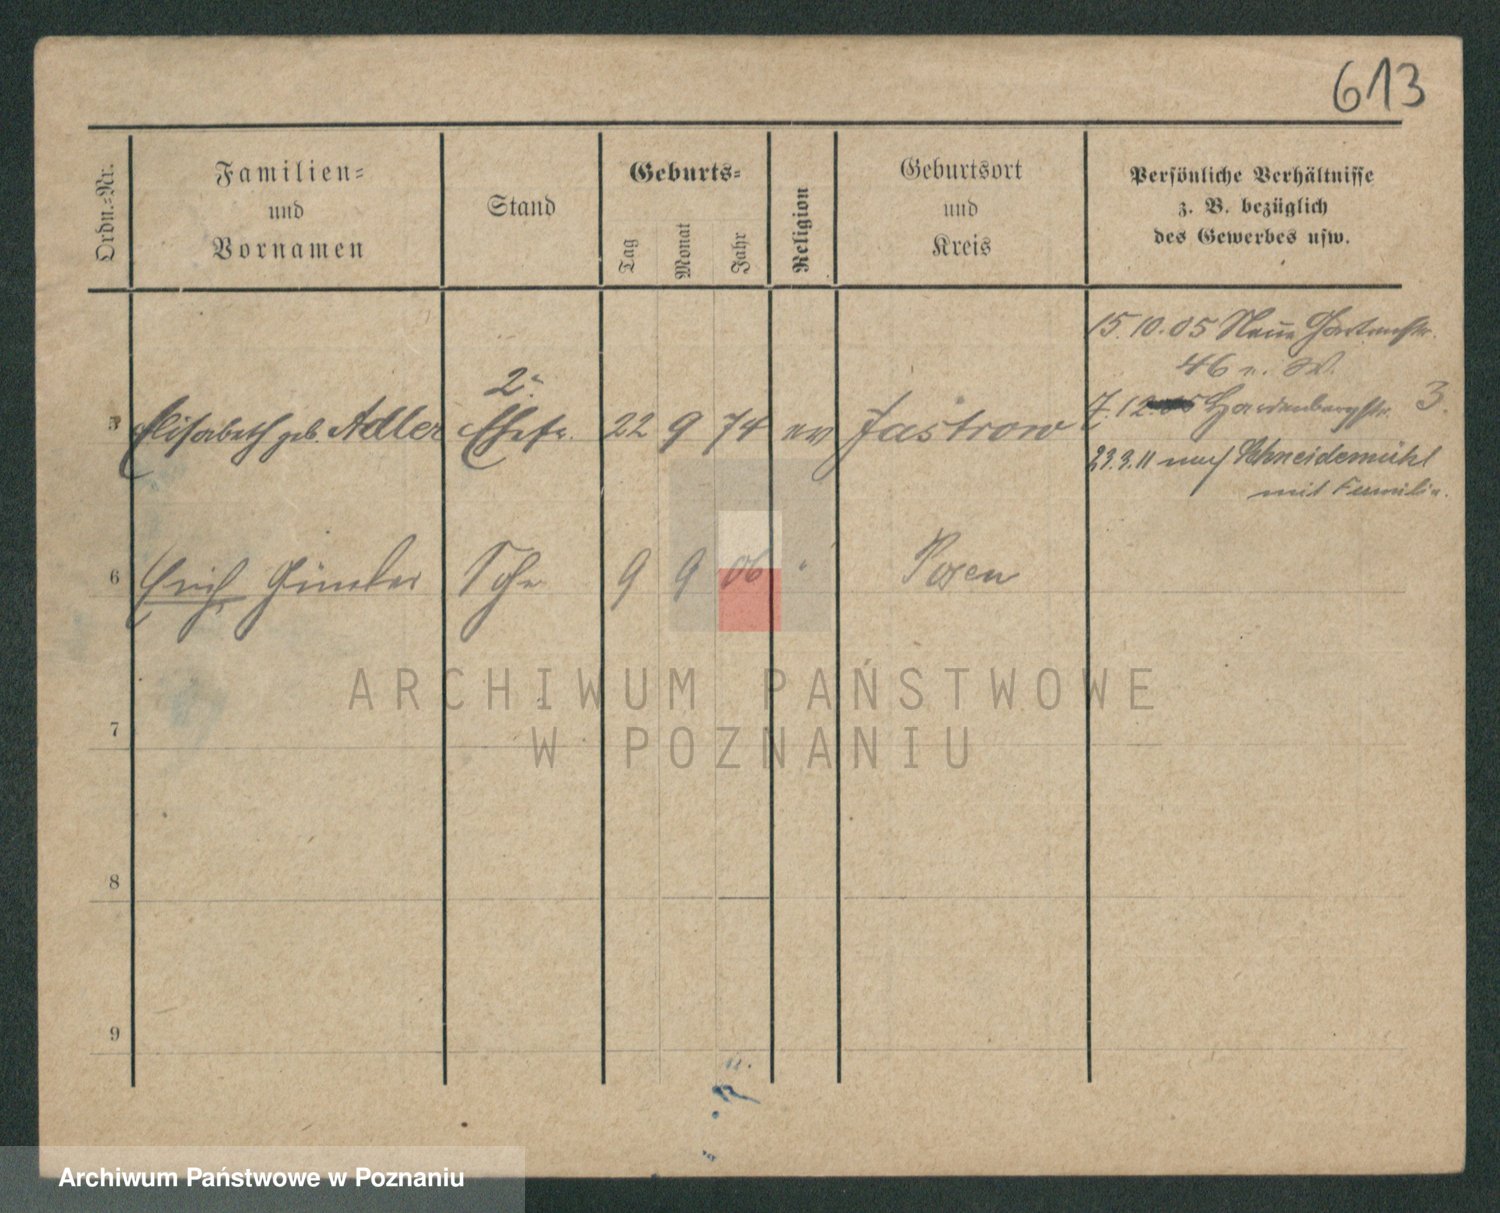 613
Ordn.=Nr.
Familien=
und
Vornamen
Stand
Geburts=
Tag
Monat
Jahr
Religion
Geburtsort
und
Kreis
Persönliche Verhältnisse
z. B. bezüglich
des Gewerbes usw.
15.10.05 Neue Gartenstr.
46 u. W.
2te
5 Elisabeth geb. Adler Ehefr. 22 9 74 ev Jastrow
7.12 Hardenbergstr. 3.
23.3.11 nach Schneidemühl
mit Familie.
6 Erich Günter Sohn 9 9 06 " Posen
7
8
9
ARCHIWUM PAŃSTWOWE
W POZNANIU
Archiwum Państwowe w Poznaniu